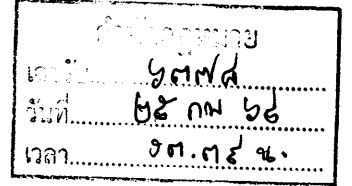 สำนักกฎหมาย
เลขรับ
วันที่ ๒๕ กพ
เวลา ๑๓.๓๕ น.